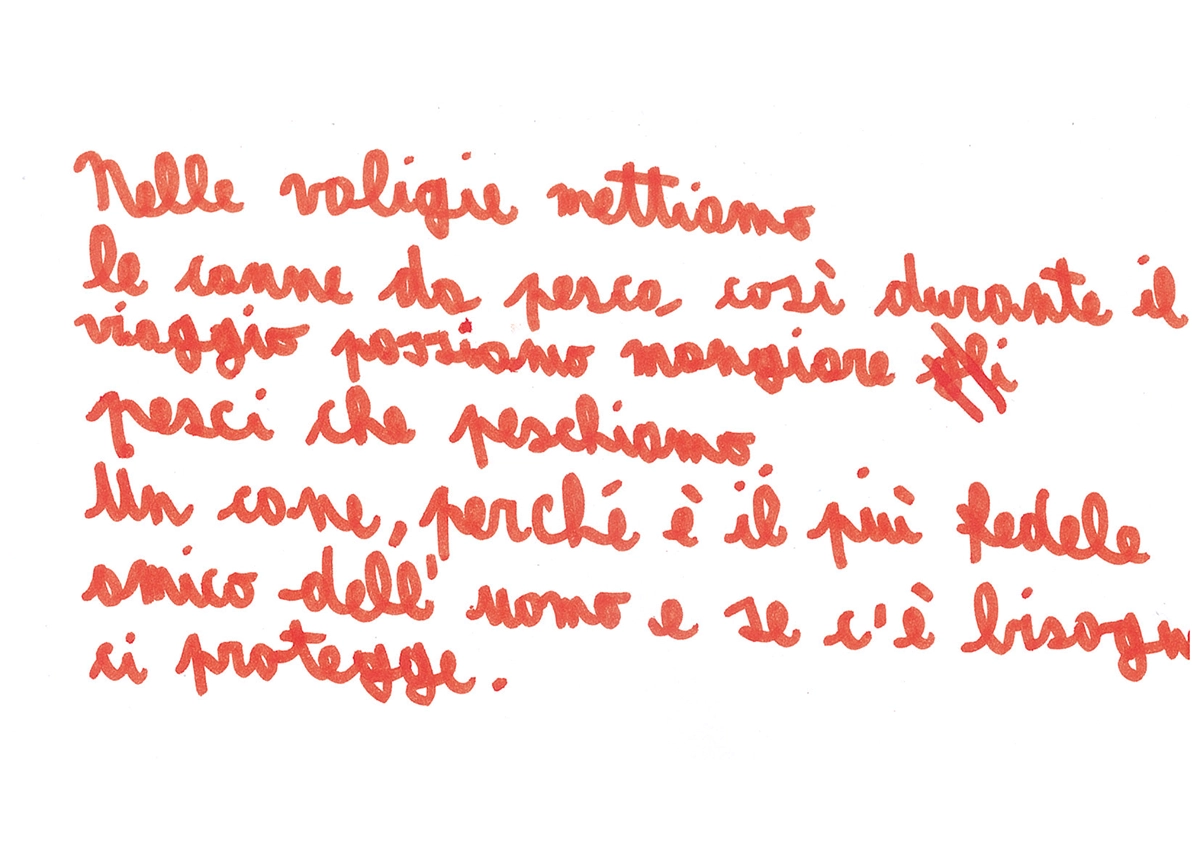 Nelle valigie mettiamo
le canne da pesca, così durante il
viaggio possiamo mangiare i
pesci che peschiamo.
Un cane, perché è il più fedele
amico dell'uomo e se c'è bisogn
ci protegge.